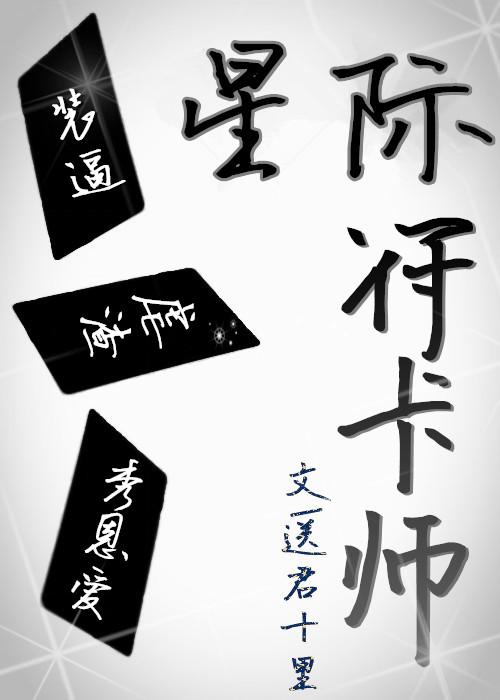 星际冴卡师
文一送君十里
装逼
虐渣
秀恩爱